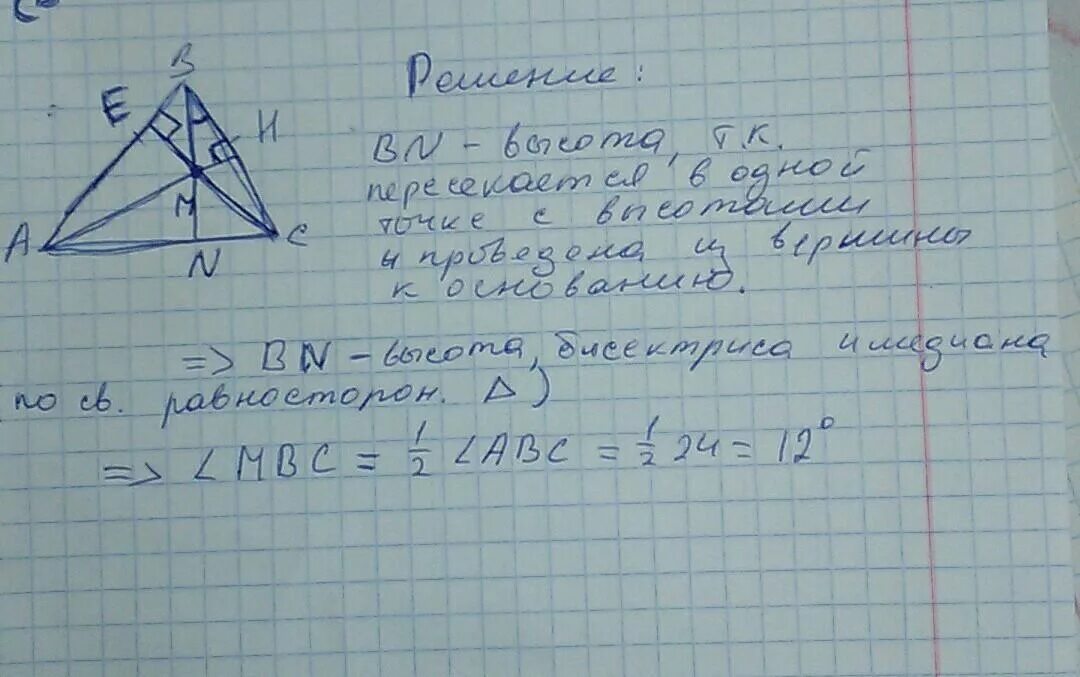 B
E
H
M
A
C
N
Решение:
BN - высота, т.к.
пересекается в одной
точке с высотами
и проведена из вершины
к основанию.
=> BN - высота, бисектриса и медиана
(по св. равносторон. Δ)
=> ∠MBC = 1/2 ∠ABC = 1/2 24 = 12°